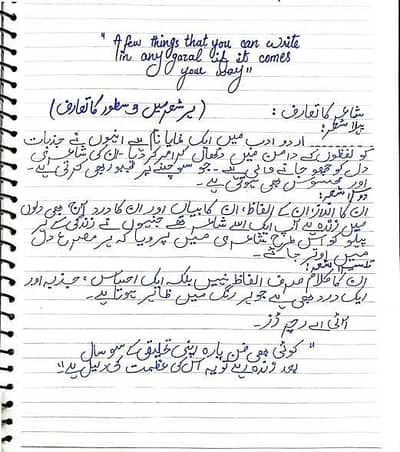 " A few things that you can write
in any gazal if it comes
your way"
شاعر کا تعارف : (ہر شعر میں 3 سطور کا تعارف)
پہلا شعر:
اردو ادب میں ایک نمایا نام ہے انہوں نے جذبات
کو لفظوں کے دامن میں ڈھال کر امر کر دیا - ان کی شاعری
دل کو چھو جانے والی ہے - جو سوچنے پر مجبور بھی کرتی ہے۔
اور محسوس بھی ہوتی ہے۔
دوسرا شعر:
ان کا انداز، ان کے الفاظ، ان کا بیاں اور ان کا درد آج بھی دلوں
میں زندہ ہے آپ ایک ایسے شاعر تھے جنہوں نے زندگی کے ہر
پہلو کو اس طرح شاعری میں پرویا کہ ہر مصرع دل
میں اتر جائے۔
تیسرا شعر:
ان کا کلام صرف الفاظ نہیں بلکہ ایک احساس ، جذبہ اور
ایک درد بھی ہے جو ہر رنگ میں ظاہر ہوتا ہے۔
آئی اے رچرڈز۔
" کوئی بھی فن پارہ اپنی تخلیق کے سو سال
بعد زندہ رہے تو یہ اس کی عظمت کی دلیل ہے"